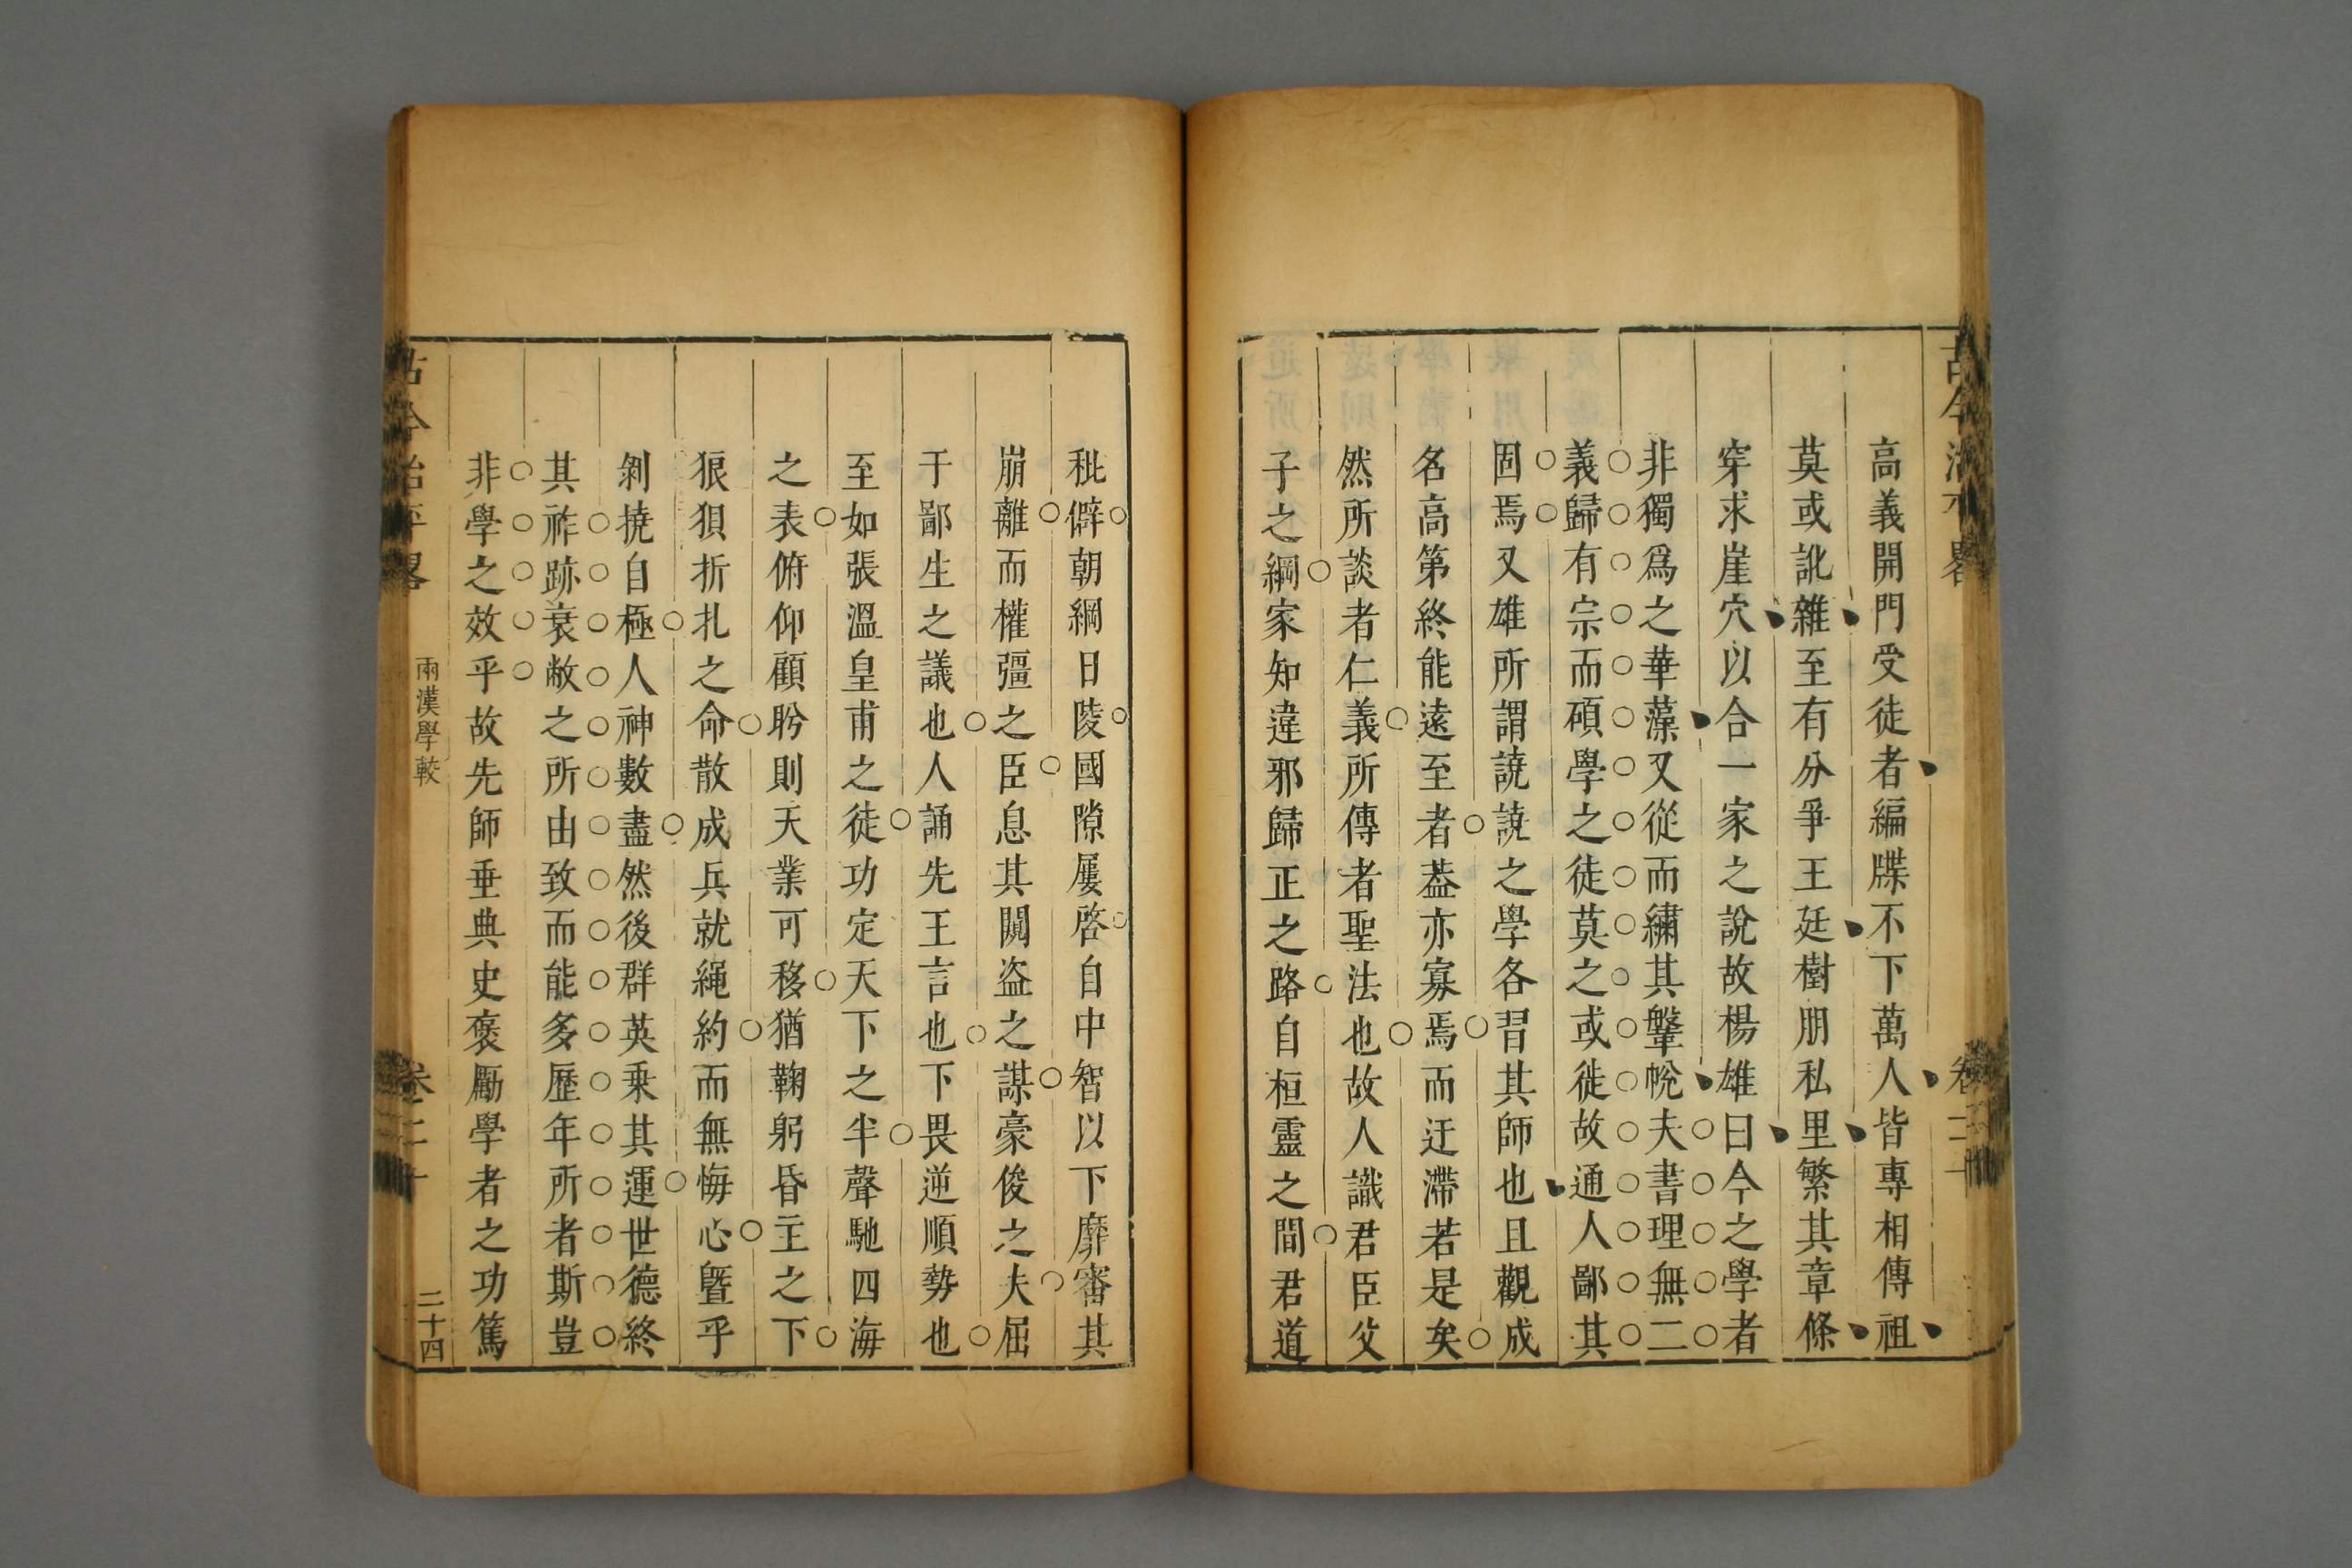 高義開門受徒者編牒不下萬人皆專相傳祖
莫或訛雜至有分爭王廷樹朋私里繁其章條
穿求崖穴以合一家之說故楊雄曰今之學者
非獨爲之華藻又從而繡其鞶帨夫書理無二
義歸有宗而碩學之徒莫之或徙故通人鄙其
固焉又雄所謂譊譊之學各習其師也且觀成
名高第終能遠至者葢亦寡焉而迂滯若是矣
然所談者仁義所傳者聖法也故人識君臣父
子之綱家知違邪歸正之路自桓靈之間君道
秕僻朝綱日陵國隙屢啓自中智以下靡審其
崩離而權彊之臣息其闚盗之謀豪俊之夫屈
于鄙生之議也人誦先王言也下畏逆順勢也
至如張溫皇甫之徒功定天下之半聲馳四海
之表俯仰顧盼則天業可移猶鞠躬昏主之下
狼狽折札之命散成兵就繩約而無悔心曁乎
剝撓自極人神數盡然後群英乗其運世德終
其祚跡衰敝之所由致而能多歷年所者斯豈
非學之效乎故先師垂典史褒勵學者之功篤
兩漢學較
卷二十
二十四